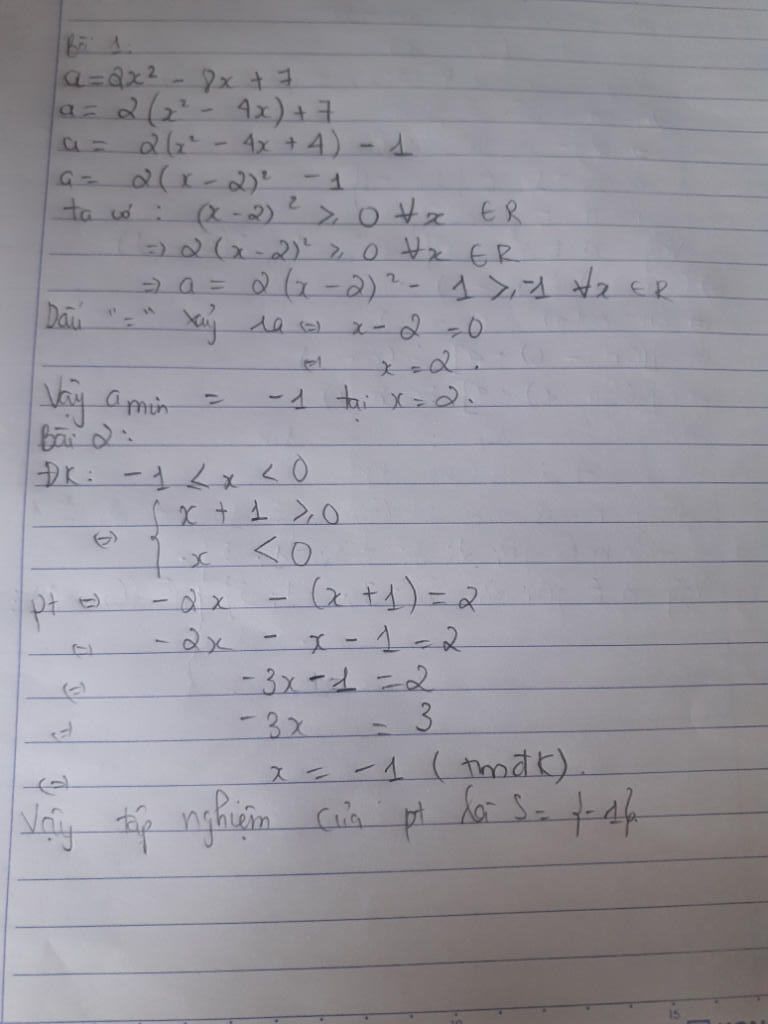 Bài 1.
a = 2x² - 8x + 7
a = 2(x² - 4x) + 7
a = 2(x² - 4x + 4) - 1
a = 2(x - 2)² - 1
ta có : (x - 2)² ≥ 0 ∀x ∈ R
⇒ 2(x - 2)² ≥ 0 ∀x ∈ R
⇒ a = 2(x - 2)² - 1 ≥ -1 ∀x ∈ R
Dấu "=" xảy ra ⇔ x - 2 = 0
⇔ x = 2.
Vậy a min = -1 tại x = 2.
Bài 2:
ĐK: -1 ≤ x < 0
⇔ { x + 1 ≥ 0
x < 0
pt ⇔ -2x - (x + 1) = 2
⇔ -2x - x - 1 = 2
⇔ -3x - 1 = 2
⇔ -3x = 3
⇔ x = -1 (tmđk).
Vậy tập nghiệm của pt là S = {-1}.
15